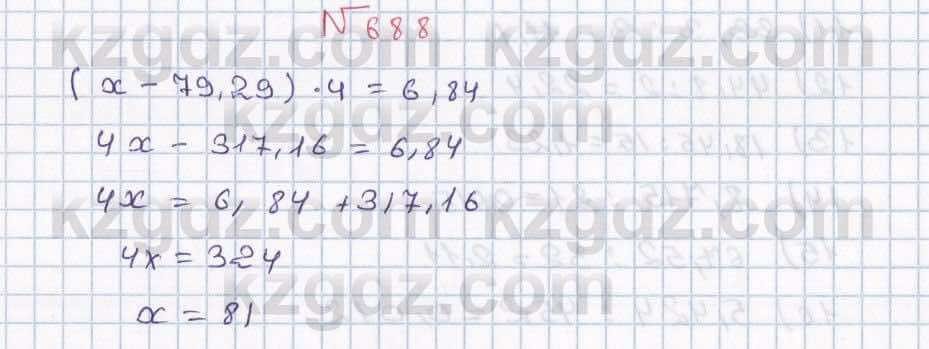 №688
kzgdz.com kzgdz.com
(x - 79,29) · 4 = 6,84
kzgdz.com
4x - 317,16 = 6,84
4x = 6,84 + 317,16
kzgdz.com kzgdz.com
4x = 324
x = 81
kzgdz.com